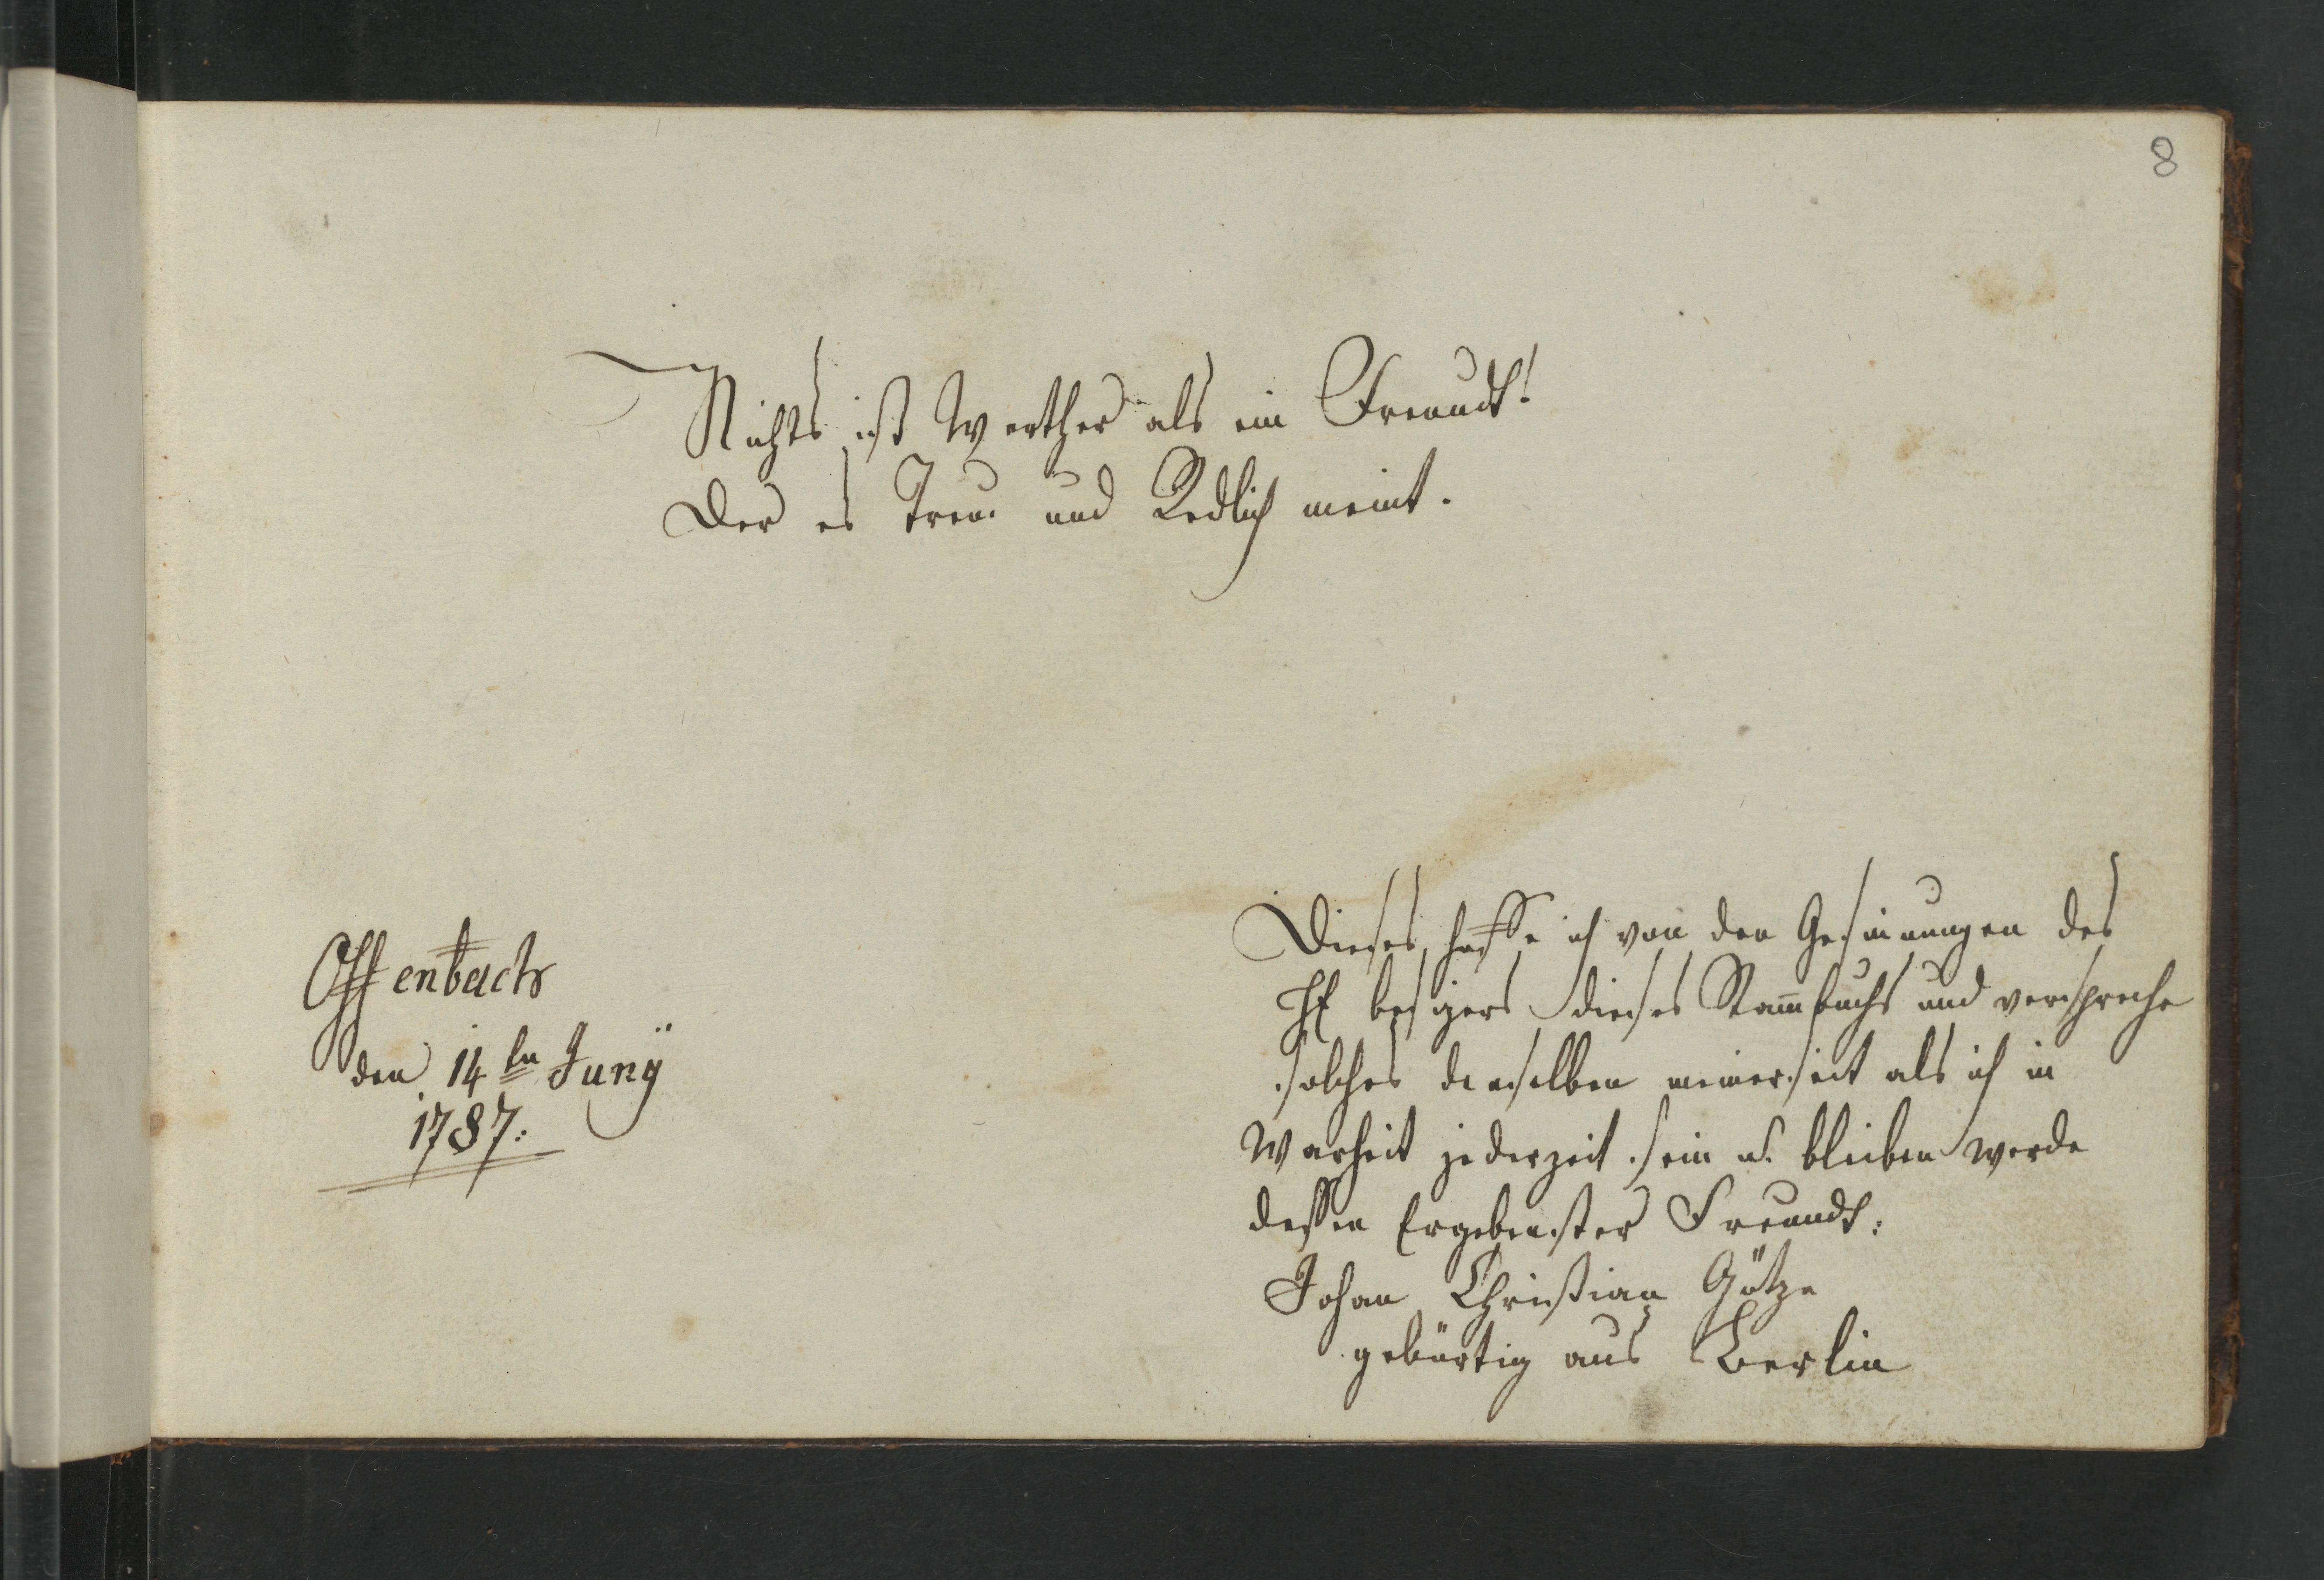 8
Nichts ist Werther als ein Freundt!
Der es Treu und Redlich meint.
Offenbach
den 14tn Juny
1787.
Dieses hoffe ich von den Gesinnungen des
H besizers dieses Stam̄buchs und verspreche
solches denselben meinerseit als ich in
Warheit jederzeit sein u. bleiben werde
dessen Ergebenster Freundt:
Johan Christian Götze
gebürtig aus Berlin